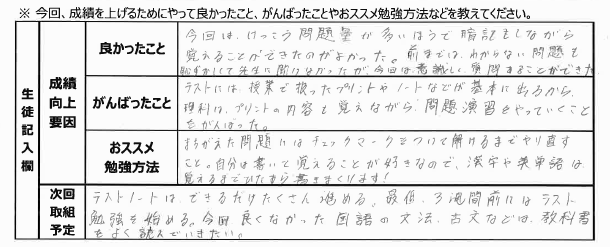 ※ 今回、成績を上げるためにやって良かったこと、がんばったことやおススメ勉強方法などを教えてください。
生徒記入欄
成績向上要因
良かったこと
今回は、けっこう問題量が多いほうで暗記をしながら
覚えることができたのがよかった。前までは、わからない問題も
恥ずかしくて先生に聞けなかったが、今回は意識して質問することができた。
がんばったこと
テストには、授業で扱ったプリントやノートなどが基本に出るから、
理科は、プリントの内容を覚えながら問題演習をやっていくこと
をがんばった。
おススメ勉強方法
まちがえた問題にはチェックマークをつけて解けるまでやり直す
こと。自分は書いて覚えることが好きなので、漢字や英単語は
覚えるまでひたすら書きまくります!
次回取組予定
テストノートはできるだけたくさん進める。最低、3週間前にはテスト
勉強を始める。今回良くなかった国語の文法、古文などは、教科書
をよく読んでいきたい。